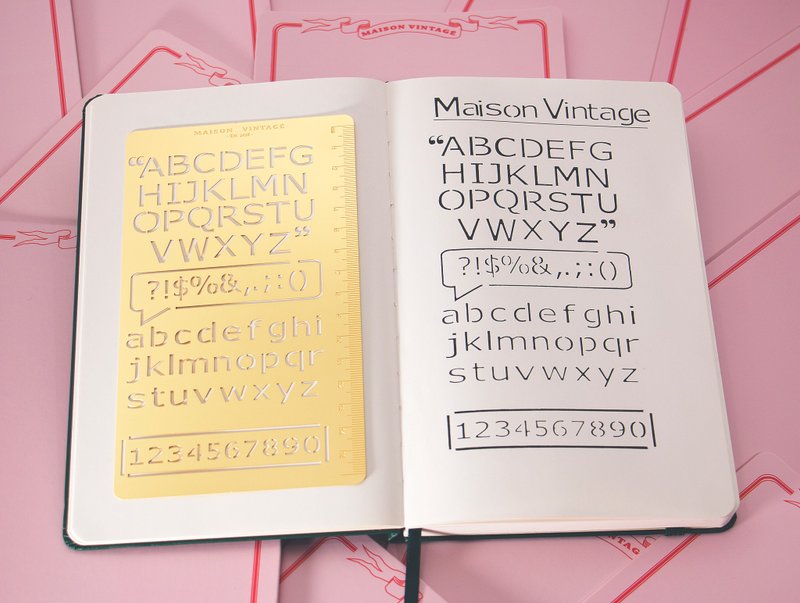 MAISON VINTAGE
MAISON VINTAGE
“ABCDEFG
HIJKLMN
OPQRSTU
VWXYZ”
?!$%&,.;:()
abcdefghi
jklmnopqr
stuvwxyz
1234567890
Maison Vintage
“ABCDEFG
HIJKLMN
OPQRSTU
VWXYZ”
?!$%&,.;:()
abcdefghi
jklmnopqr
stuvwxyz
1234567890